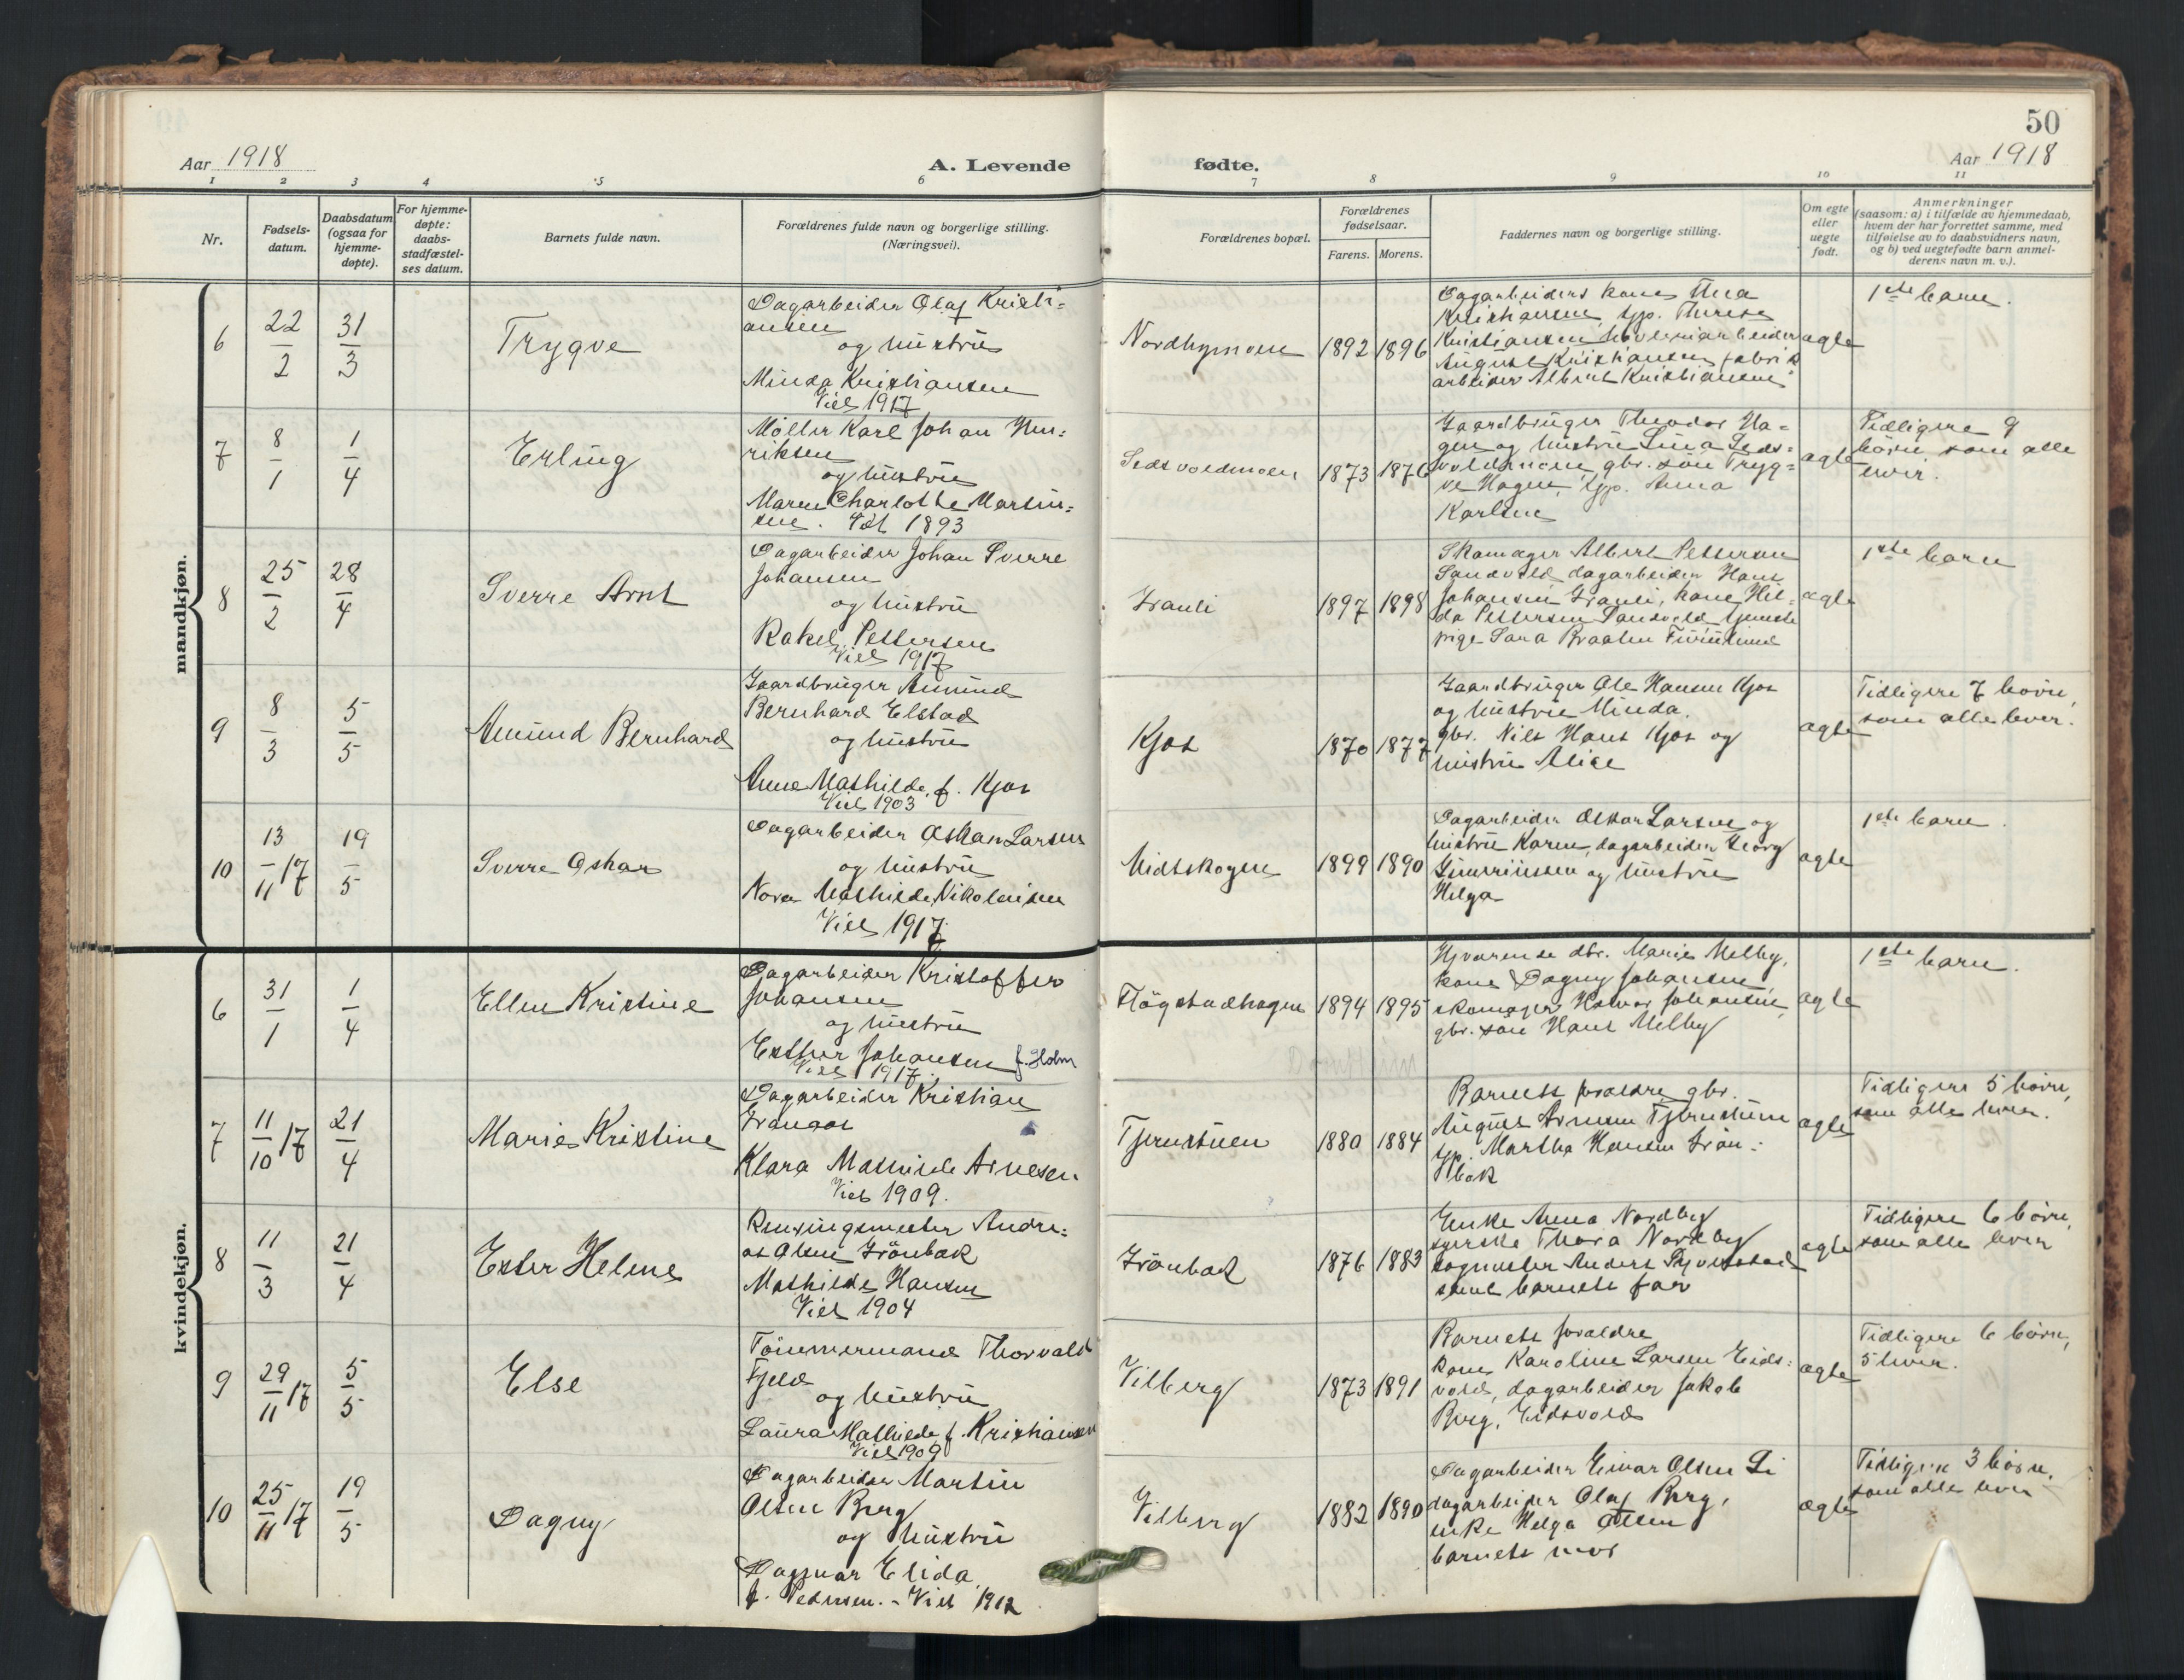 50
Aar 1918
A. Levende
fødte.
Aar 1918
1 2 3 4 5 6 7 8 9 10 11
Nr.
Fødsels-
datum.
Daabsdatum
(ogsaa for
hjemme-
døpte).
For hjemme-
døpte:
daabs-
stadfæstel-
ses datum.
Barnets fulde navn.
Forældrenes fulde navn og borgerlige stilling.
(Næringsvei).
Forældrenes bopæl.
Forældrenes
fødselsaar.
Farens. Morens.
Faddernes navn og borgerlige stilling.
Om egte
eller
uegte
født.
Anmerkninger
(saasom: a) i tilfælde av hjemmedaab,
hvem der har forrettet samme, med
tilføielse av to daabsvidners navn,
og b) ved uegtefødte barn anmel-
derens navn m. v.).
mandkjøn.
6
22/2
31/3
Trygve
Dagarbeider Olaf Kristi-
ansen
og hustru
Minda Kristiansen
Viet 1917
Nordhymoen
1892 1896
Dagarbeiders kone Thea
Kristiansen, tjp. Therese
Kristiansen, arbeider
August Kristiansen, fabrik
arbeider Albert Kristiansen
ægte
1ste barn.
7
8/1
1/4
Erling
Møller Karl Johan Hen-
riksen
og hustru
Maren Charlotte Martin-
sen. Viet 1893
Eidsvoldmoen
1873 1876
Gaardbruger Theodor Ha-
gen og hustru Lina Eids-
voldmoen, gbr. søn Tryg-
ve Hagen, tjp. Anna
Karlsen
ægte
Tidligere 9
børn, som alle
lever.
8
25/2
28/4
Sverre Arnt
Dagarbeider Johan Sverre
Johansen
og hustru
Rakel Pettersen
Viet 1917
Grauli
1897 1898
Skomager Albert Pettersen
Sandvold, dagarbeider Hans
Johansen Grauli, kone Hil-
da Pettersen Sandvold, tjeneste
pige Sara Braaten
ægte
1ste barn
9
8/3
5/5
Amund Bernhard
Gaardbruger Amund
Bernhard Elstad
og hustru
Anne Mathilde, f. Kjos
Viet 1903
Kjos
1870 1877
Gaardbruger Ole Hansen Kjos
og hustru Minda.
gbr. Nils Hans Kjos og
hustru Alice
ægte
Tidligere 7 børn,
som alle lever.
10
13/11 17
19/5
Sverre Oskar
Dagarbeider Oskar Larsen
og hustru
Nora Mathilde Nikolaisen
Viet 1917
Midtskogen
1899 1890
Dagarbeider Oskar Larsen og
hustru Karen, dagarbeider Georg
og hustru
Helga
ægte
1ste barn.
kvindekjøn.
6
31/1
1/4
Ellen Kristine
Dagarbeider Kristoffer
Johansen
og hustru
Esther Johansen f. Holm
Viet 1917.
Fløgstadhagen
1894 1895
Hjværende dtr. Marie Melby,
kone Dagny Johansen
skomager Johansen,
gbr. søn Hans Melby
ægte
1ste barn.
7
11/10 17
21/4
Marie Kristine
Dagarbeider Kristian
Granaas
Klara Mathilde Arnesen
Viet 1909.
Tjernstuen
1880 1884
Barnets forældre gbr.
August Arnesen Tjernstuen
tjp. Martha Hansen Grøn-
bæk
ægte
Tidligere 5 børn,
som alle lever.
8
11/3
21/4
Ester Helene
Rensningsmester Andre-
as Olsen Grønbæk
Mathilde Hansen
Viet 1904
Grønbæk
1876 1883
Enke Anna Nordby
syerske Thora Nordby
Anders
samt barnets far
ægte
Tidligere 6 børn,
som alle lever
9
29/11 17
5/5
Else
Tømmermand Thorvald
Fjeld
og hustru
Laura Mathilde f. Kristiansen
Viet 1909
Vilberg
1873 1891
Barnets forældre
kone Karoline Larsen Eids-
vold, dagarbeider Jakob
Berg, Eidsvold
ægte
Tidligere 6 børn,
5 lever.
10
25/11 17
19/5
Dagny
Dagarbeider Martin
Olsen Berg
og hustru
Dagmar Elida
f. Pedersen. - Viet 1912
Vilberg
1882 1890
Dagarbeider Einar Olsen Li
dagarbeider Olaf Berg,
enke Helga Olsen
barnets mor
ægte
Tidligere 3 børn,
som alle lever